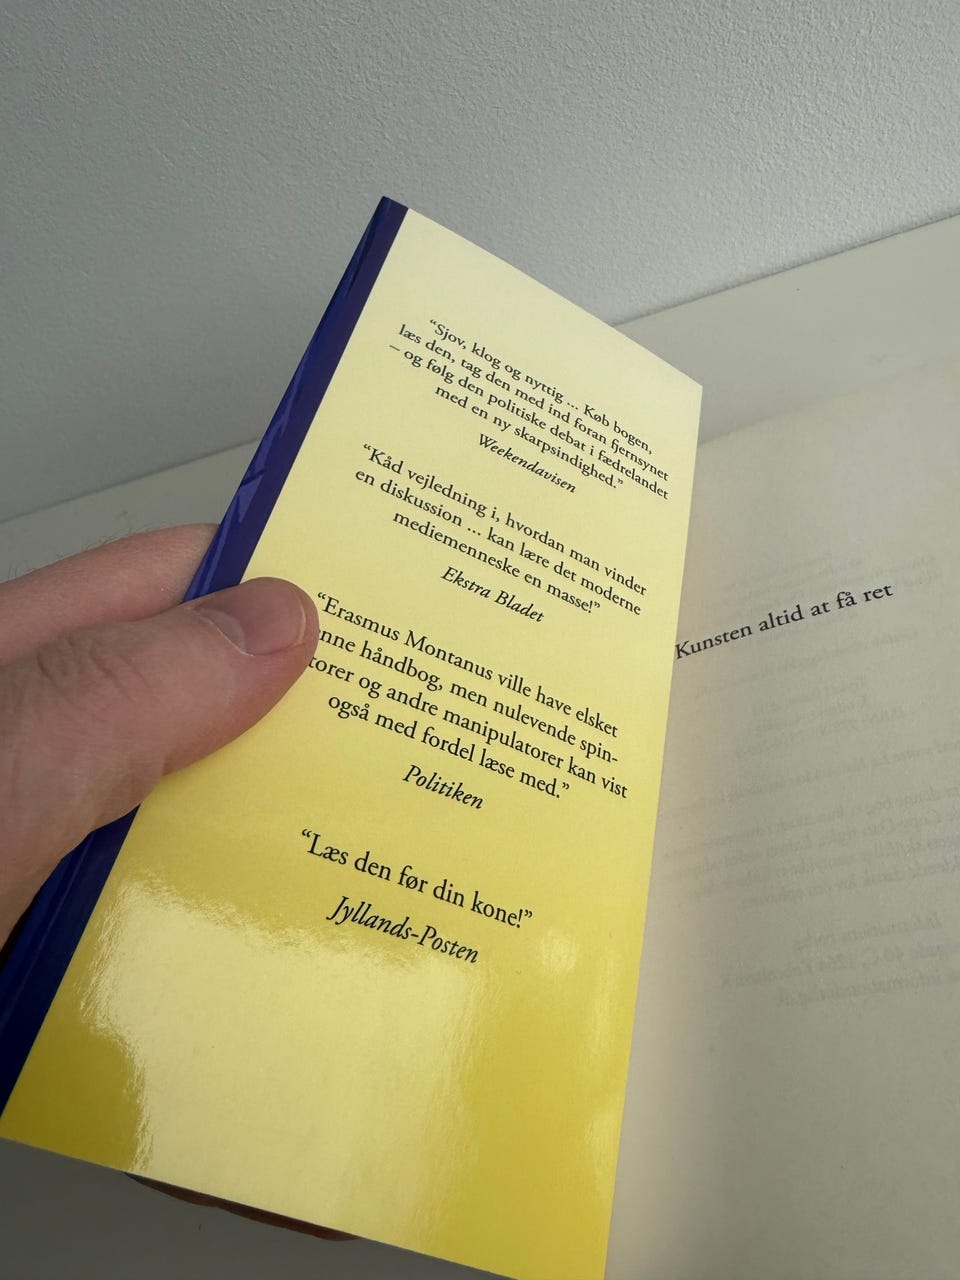 “Sjov, klog og nyttig ... Køb bogen,
læs den, tag den med ind foran fjernsynet
– og følg den politiske debat i fædrelandet
med en ny skarpsindighed.”
Weekendavisen
“Kåd vejledning i, hvordan man vinder
en diskussion ... kan lære det moderne
mediemenneske en masse!”
Ekstra Bladet
“Erasmus Montanus ville have elsket
nne håndbog, men nulevende spin-
torer og andre manipulatorer kan vist
også med fordel læse med.”
Politiken
“Læs den før din kone!”
Jyllands-Posten
Kunsten altid at få ret